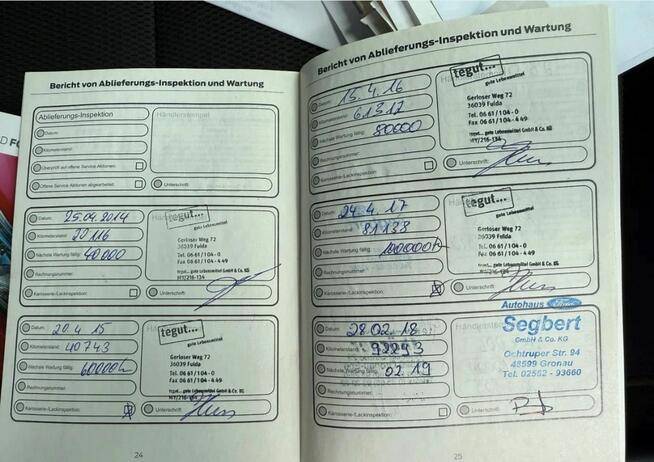 Bericht von Ablieferungs-Inspektion und Wartung
Ablieferungs-Inspektion
Datum:
Kilometerstand:
Überprüft auf offene Service Aktionen:
Offene Service Aktionen abgearbeitet:
Händlerstempel
Unterschrift:
Datum: 25.04.2014
Kilometerstand: 20 116
Nächste Wartung fällig: 40000
Rechnungsnummer:
Karosserie-/Lackinspektion:
tegut...
gute Lebensmittel
Gerloser Weg 72
36039 Fulda
Tel. 06 61 / 104 - 0
Fax 06 61 / 104 - 4 49
tegut... gute Lebensmittel GmbH & Co. KG
NY/216-134
Unterschrift:
Datum: 20.4.15
Kilometerstand: 40743
Nächste Wartung fällig: 60000
Rechnungsnummer:
Karosserie-/Lackinspektion:
tegut...
gute Lebensmittel
Gerloser Weg 72
36039 Fulda
Tel. 06 61 / 104 - 0
Fax 06 61 / 104 - 4 49
tegut... gute Lebensmittel GmbH & Co. KG
NY/216-134
Unterschrift:
24
Bericht von Ablieferungs-Inspektion und Wartung
Datum: 15.4.16
Kilometerstand: 61312
Nächste Wartung fällig: 80000
Rechnungsnummer:
Karosserie-/Lackinspektion:
tegut...
gute Lebensmittel
Gerloser Weg 72
36039 Fulda
Tel. 06 61 / 104 - 0
Fax 06 61 / 104 - 4 49
tegut... gute Lebensmittel GmbH & Co. KG
NY/216-134
Unterschrift:
Datum: 24.4.17
Kilometerstand: 81138
Nächste Wartung fällig: 100000
Rechnungsnummer:
Karosserie-/Lackinspektion:
tegut...
gute Lebensmittel
Gerloser Weg 72
36039 Fulda
Tel. 06 61 / 104 - 0
Fax 06 61 / 104 - 4 49
tegut... gute Lebensmittel GmbH & Co. KG
NY/216-134
Unterschrift:
Datum: 28.02.18
Kilometerstand: 92293
Nächste Wartung fällig: 02.19
Rechnungsnummer:
Karosserie-/Lackinspektion:
Autohaus Ford
Segbert
GmbH & Co. KG
Ochtruper Str. 94
48599 Gronau
Tel. 02562 - 93660
Unterschrift:
25